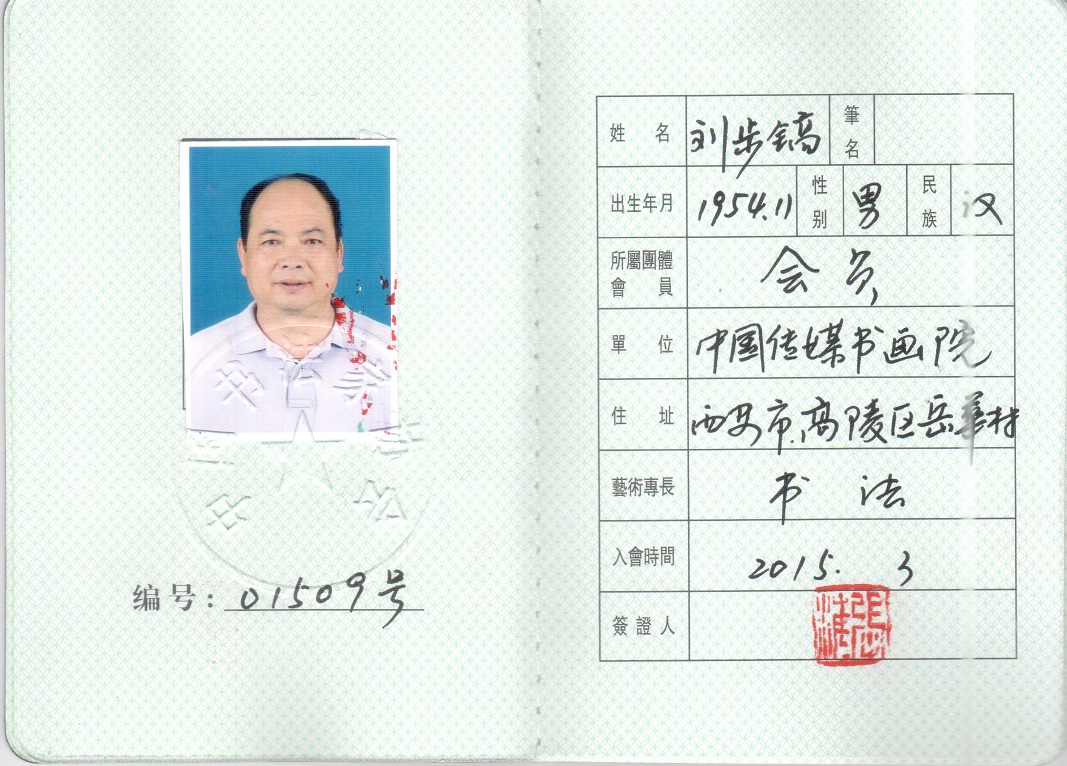 编号：01509号
姓名 刘步镐 筆名
出生年月 1954.11 性别 男 民族 汉
所屬團體會員 会员
單位 中国传媒书画院
住址 西安市高陵区岳華村
藝術專長 书法
入會時間 2015. 3
簽證人